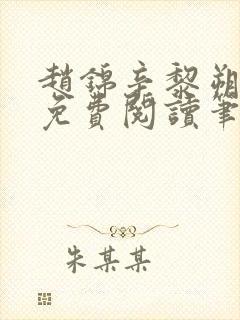 趙錦辛黎朔
免費閱讀筆
朱某某